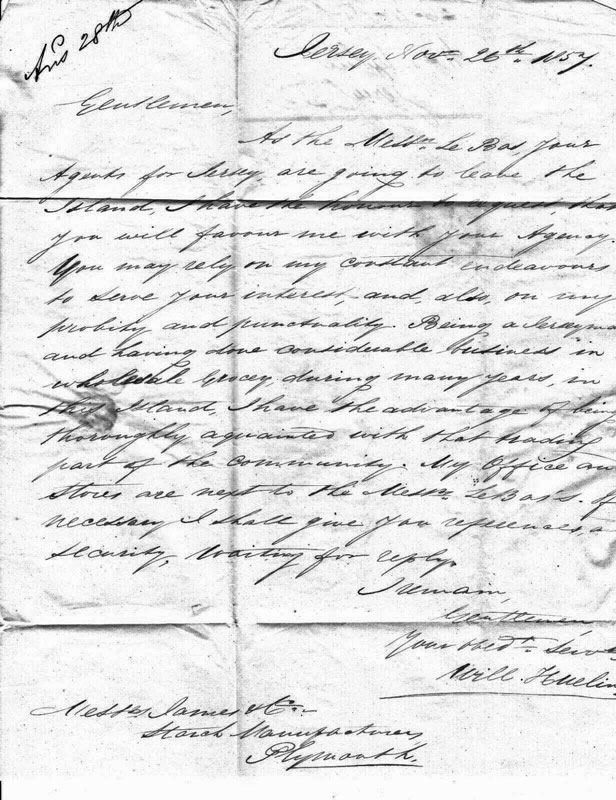 Ans 28th
Jersey, Nov. 26th 1857.
Gentlemen,
As the Messrs Le Bas, your
Agents for Jersey, are going to leave the
Island, I have the honour to request, that
you will favour me with your Agency
You may rely on my constant endeavours
to serve your interest, and, also, on my
probity and punctuality. Being a Jerseyman
and having done considerable business in
wholesale Grocey, during many years, in
this Island, I have the advantage of being
thoroughly aquainted with that trading
part of the community. My Office an
Stores are next to the Messrs Le Bas's. If
necessary I shall give you references, a
security, Waiting for reply.
I remain,
Gentlemen
Your obedt. Serv
Will. Huelin
Messrs James & Co.
Starch Manufacturers
Plymouth.